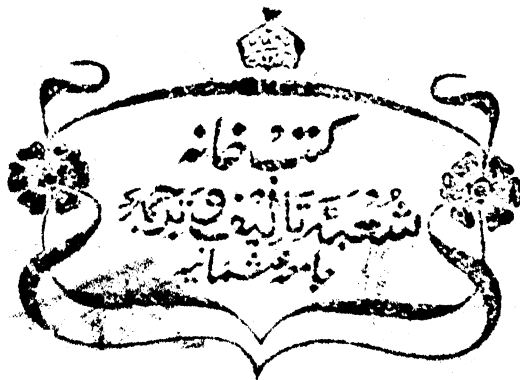 کتب خانہ
شُعبَۂ تَالیف و تَرجمہ
جامعہ عثمانیہ